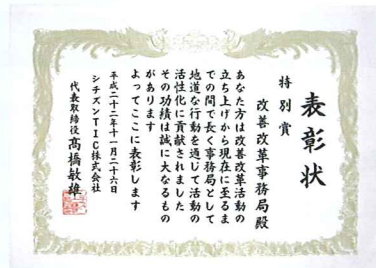 表彰状
特別賞
改善改革事務局殿
あなた方は改善改革活動の
立ち上げから現在に至るま
での間で長く事務局として
地道な行動を通じて活動の
活性化に貢献されました
その功績は誠に大なるもの
があります
よってここに表彰します
平成二十二年十一月二十六日
シチズンTIC株式会社
代表取締役髙橋敏雄